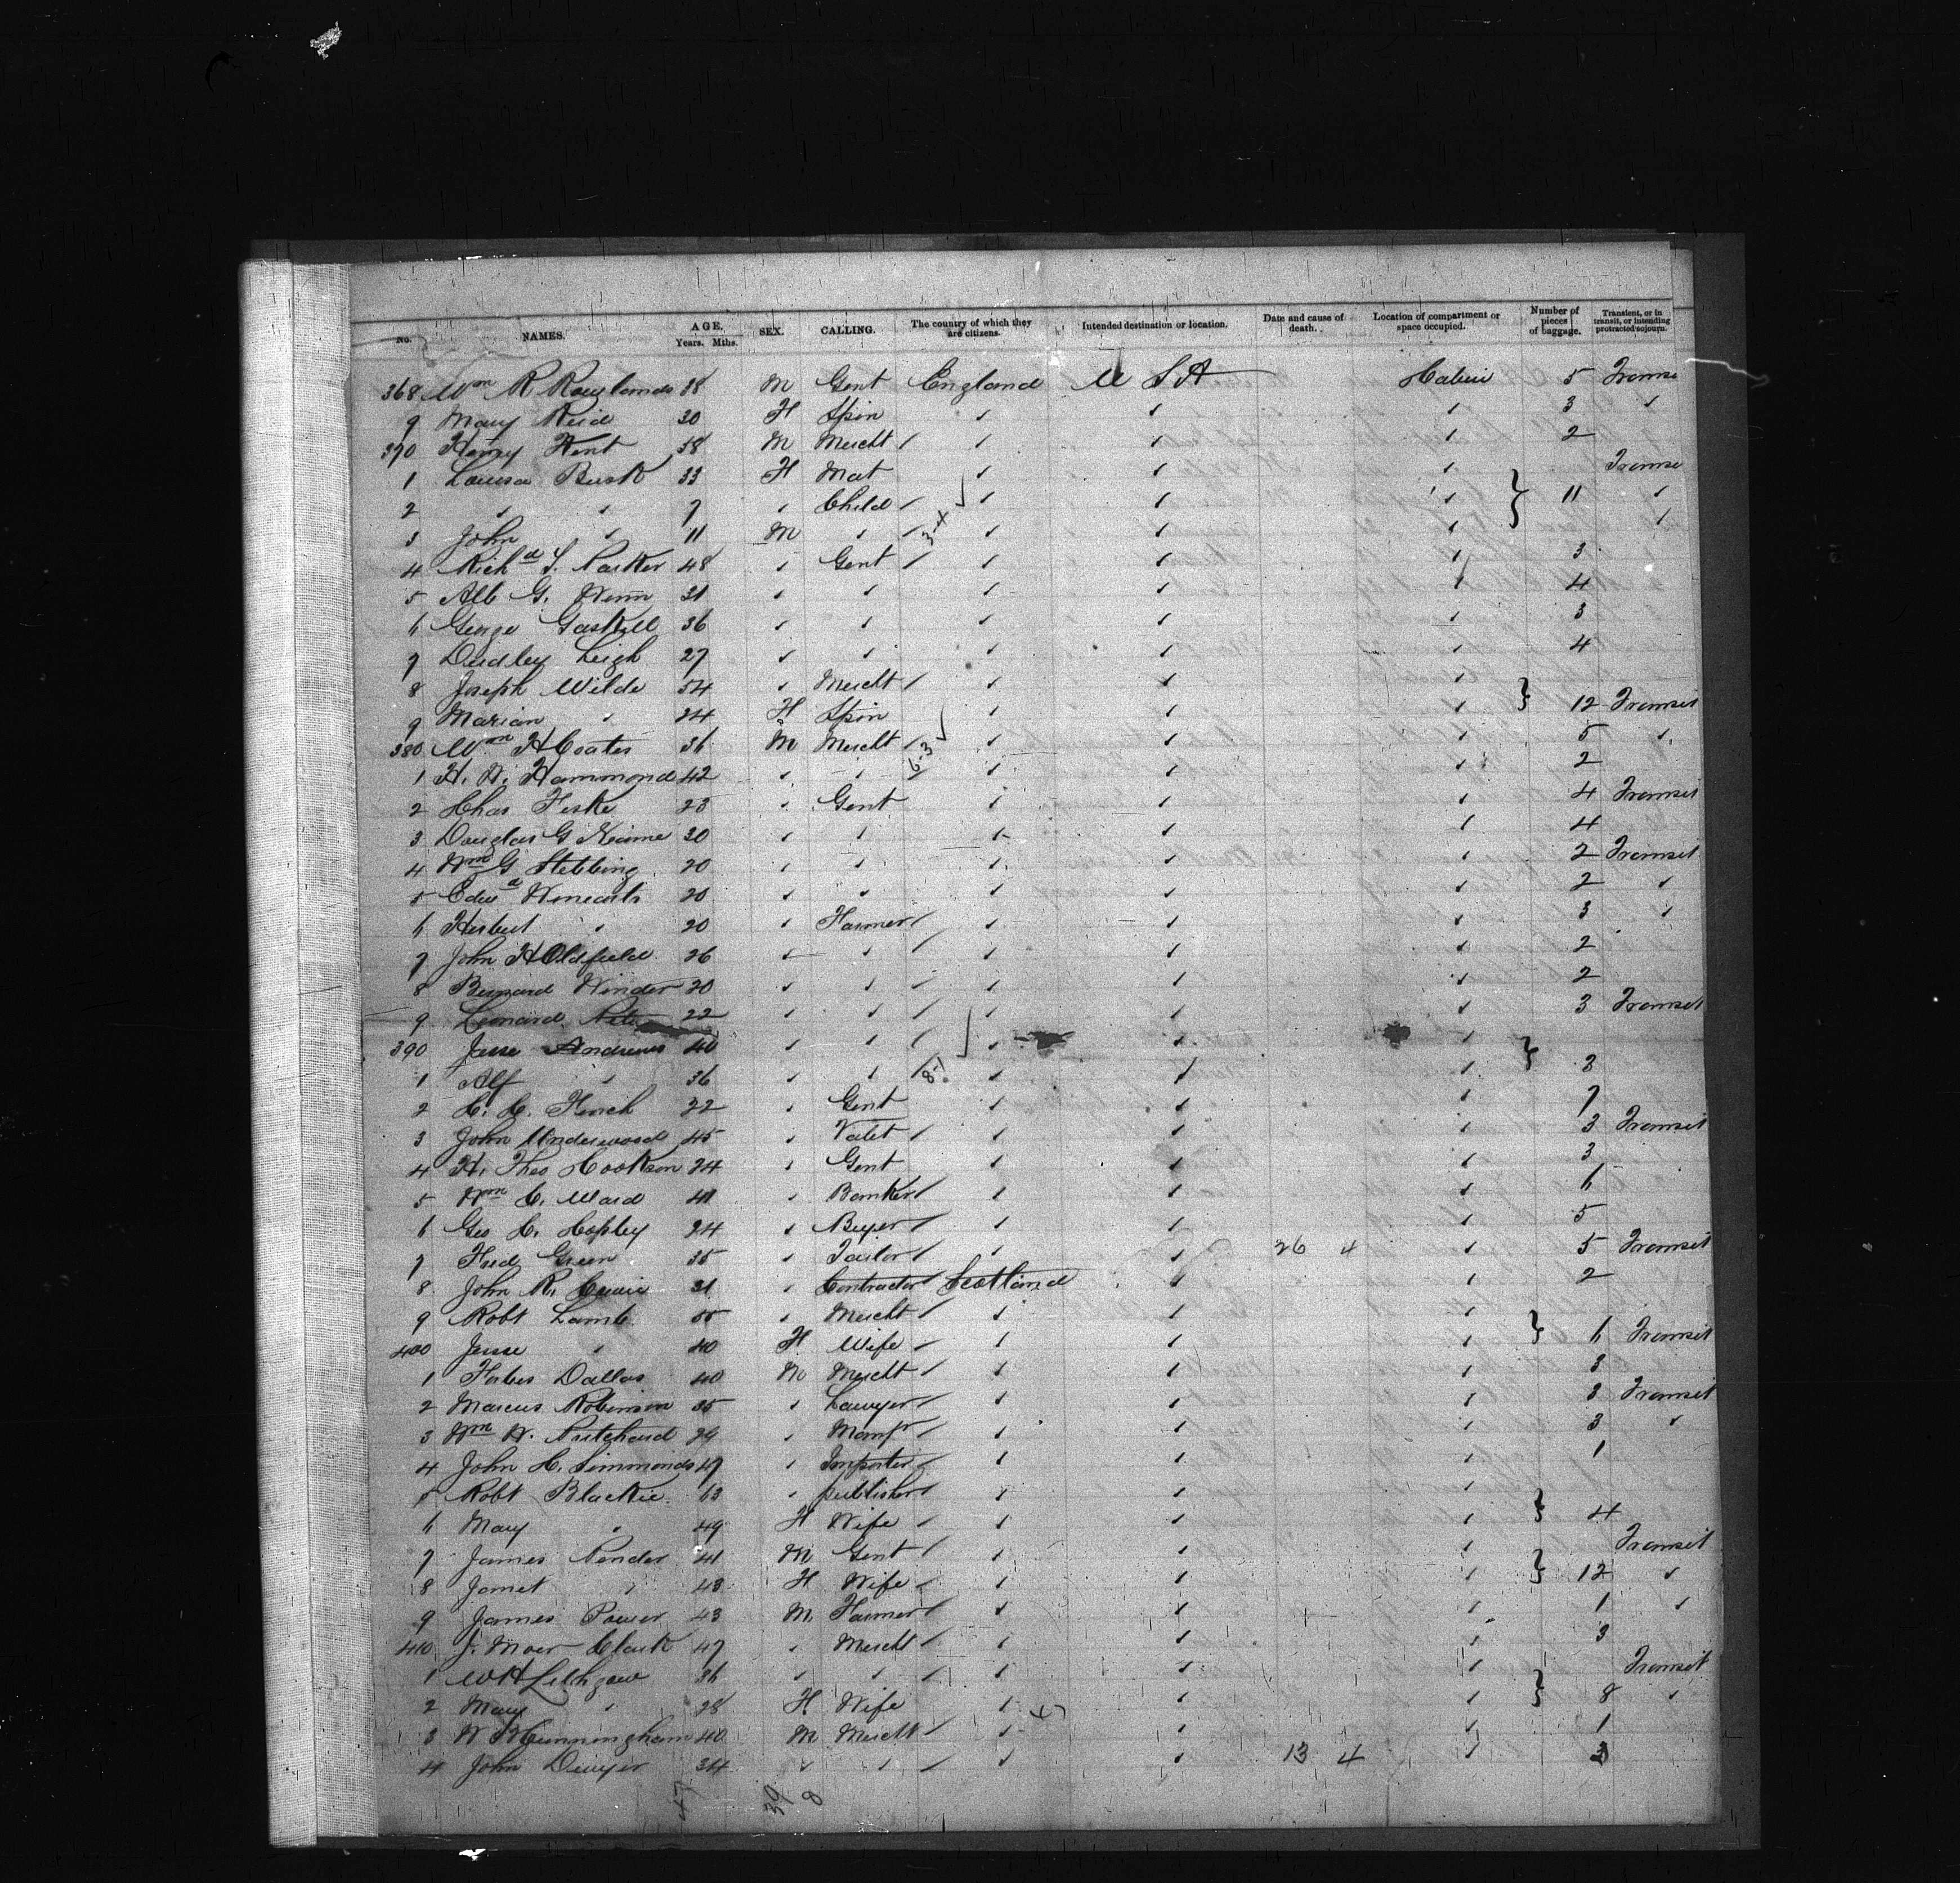 No. NAMES. AGE. Years. Mths. SEX. CALLING. The country of which they are citizens. Intended destination or location. Date and cause of death. Location of compartment or space occupied. Number of pieces of baggage. Transient, or in transit, or intending protracted sojourn.
368 Wm R Rowlands 38 M Gent England U S A Cabin 5 Transit
9 Mary Reid 30 F Spin ✓ ✓ ✓ 3 ✓
370 Henry Kent 58 M Mercht ✓ ✓ ✓ 2
1 Louisa Busk 33 F Mat ✓ ✓ ✓ Transit
2 " " 7 " Child ✓ ✓ ✓ } 11 ✓
3 John " 11 M " 3-4 ✓ ✓ ✓ ✓
4 Richd T. Parker 48 " Gent ✓ ✓ ✓ 3
5 Alb G. Wenn 31 " " ✓ ✓ ✓ 4
6 George Gaskell 36 " " ✓ ✓ ✓ 3
7 Dudley Leigh 27 " " ✓ ✓ ✓ 4
8 Joseph Wilde 54 " Mercht ✓ ✓ ✓
9 Marian " 24 F Spin ✓ ✓ ✓ } 12 Transit
380 Wm H Coates 36 M Mercht ✓ ✓ ✓ 5 ✓
1 H. W. Hammond 42 " " 6-3 ✓ ✓ ✓ 2
2 Chas Fiske 23 " Gent ✓ ✓ ✓ 4 Transit
3 Douglas G 20 " " ✓ ✓ ✓ 4
4 Wm G Stebbing 20 " " ✓ ✓ ✓ 2 Transit
5 Edwd 20 " " ✓ ✓ ✓ 2 ✓
6 Herbert " 20 " Farmer ✓ ✓ ✓ 3 ✓
7 John H Oldfield 26 " " ✓ ✓ ✓ 2
8 Bernard Winder 20 " " ✓ ✓ ✓ 2
9 Leonard 22 " " ✓ ✓ ✓ 3 Transit
390 Jesse Andrews 40 " " ✓ ✓ ✓
1 Alf " 36 " " 8-1 ✓ ✓ ✓ } 3
2 C. C. Finch 22 " Gent ✓ ✓ ✓ 7
3 John Underwood 45 " Valet ✓ ✓ ✓ 3 Transit
4 H. Theo Cookson 24 " Gent ✓ ✓ ✓ 3
5 Wm C. Ward 41 " Banker ✓ ✓ ✓ 6
6 Geo C. Copley 24 " Buyer ✓ ✓ ✓ 5
7 Fred Green 35 " Tailor ✓ ✓ 26 4 ✓ 5 Transit
8 John R. 31 " Contractor Scotland ✓ ✓ 2
9 Robt Lamb 55 " Mercht ✓ ✓ ✓
400 Jesse " 40 F Wife ✓ ✓ ✓ } 6 Transit
1 Forbes Dallas 40 M Mercht ✓ ✓ ✓ 3
2 Marcus Robinson 35 " Lawyer ✓ ✓ ✓ 3 Transit
3 Wm W. Pritchard 29 " Manfr ✓ ✓ ✓ 3 ✓
4 John C. Simmonds 47 " Importer ✓ ✓ ✓ 1
5 Robt Blackie 63 " publisher ✓ ✓ ✓
6 Mary " 49 F Wife ✓ ✓ ✓ } 4
7 James Pender 41 M Gent ✓ ✓ ✓ Transit
8 Janet " 43 F Wife ✓ ✓ ✓ } 12 ✓
9 James Power 43 M Farmer ✓ ✓ ✓ 1 ✓
410 J. Moer Clark 47 " Mercht ✓ ✓ ✓ 3
1 W H Lithgow 36 " " ✓ ✓ ✓ Transit
2 Mary " 28 F Wife ✓ ✓ ✓ } 8 ✓
3 W Cunningham 40 M Mercht ✓ ✓ ✓ 1
4 John Dwyer 34 " " ✓ ✓ 13 4 ✓ 3
47 39 8